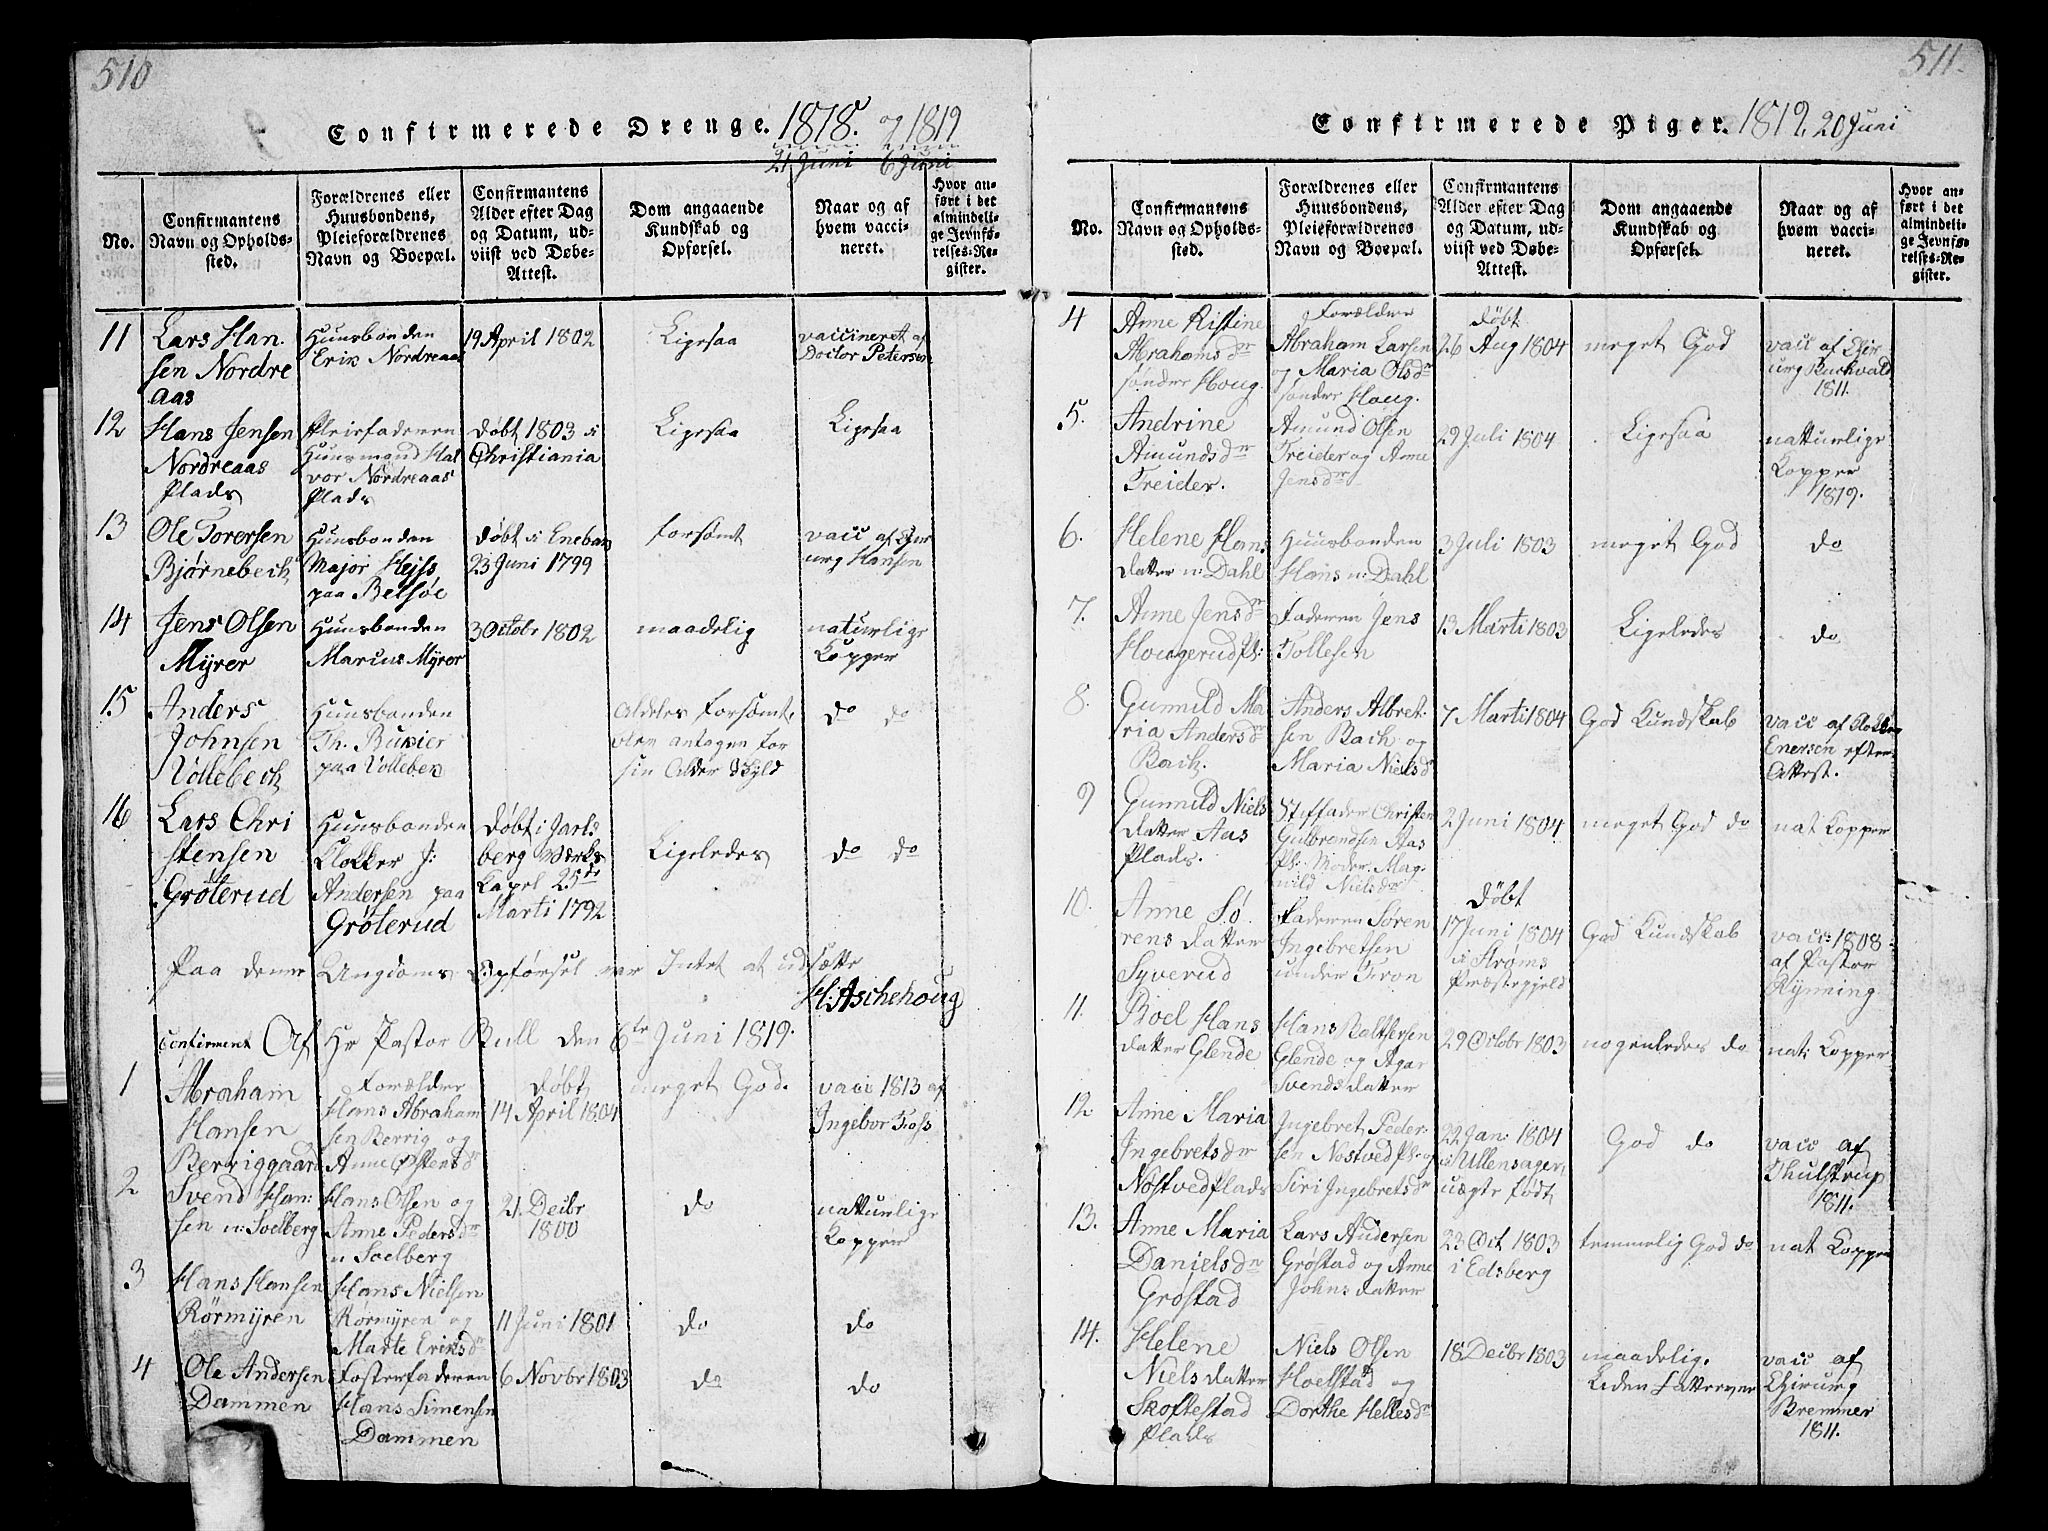 510
Confirmerede Drenge. 1818. og 1819
21 Juni 6 Juni
No.
Confirmantens
Navn og Opholds-
sted.
Forældrenes eller
Huusbondens,
Pleieforældrenes
Navn og Boepæl.
Confirmantens
Alder efter Dag
og Datum, ud-
viist ved Døbe-
Attest.
Dom angaaende
Kundskab og
Opførsel.
Naar og af
hvem vacci-
neret.
Hvor an-
ført i det
almindeli-
ge Jevnfø-
relses-Re-
gister.
11
Lars Han-
sen Nordre
Aas
Huusbonden
Erik Nordreaas
19 April 1802
Ligesaa
vaccineret af
Doctor Petersen
12
Hans Jensen
Nordreaas
Plads
Pleiefaderen
Huusmand Hal
vor Nordreaas
Plads
Døbt 1803 i
Christiania
Ligesaa
Ligesaa
13
Ole Torersen
Bjørnebech
Huusbonden
Major Hejss
paa Belsøe
Døbt i Enebak
23 Juni 1799
forsømt
vacc af Chir
urg Hansen
14
Jens Olsen
Myrer
Huusbonden
Marius Myrer
3 Octobr 1802
maadelig
naturlige
Kopper
15
Anders
Johnsen
Vollebech
Huusbonden
Th. Bukier
paa Vollebek
Aldeles forsømt,
men antagen for
sin Alder Skyld
do do
16
Lars Chri
stensen
Grøterud
Huusbonden
Klokker J:
Andersen paa
Grøterud
Døbt i Jarls
berg Værks
Kapel 25de
Marti 1792
Ligeledes
do do
Paa denne Ungdoms Opførsel var Intet at udsætte
H. Aschehoug
Confirment Af Hr Pastor Bull den 6te Juni 1819.
1
Abraham
Hansen
Berriggaard
Forælder
Hans Abraham
sen Berrig og
Anne Østensdr
Døbt
14 April 1804
meget God.
vacc 1813 af
Ingebor Foss
2
Svend Han:
sen n: Soelberg
Hans Olsen og
Anne Pedersdr
n Soelberg
21 Decbr
1800
do
naturlige
Kopper
3
Hans Hansen
Rørmyren
Hans Nielsen
Rørmyren og
Marte Eriksdr
11 Juni 1801
do
do
4
Ole Andersen
Dammen
Fosterfaderen
Hans Simensen
Dammen
6 Novbr 1803
do
do
511.
Confirmerede Piger. 1819, 20 Juni
No.
Confirmantens
Navn og Opholds-
sted.
Forældrenes eller
Huusbondens,
Pleieforældrenes
Navn og Boepæl.
Confirmantens
Alder efter Dag
og Datum, ud-
viist ved Døbe-
Attest.
Dom angaaende
Kundskab og
Opførsel.
Naar og af
hvem vacci-
neret.
Hvor an-
ført i det
almindeli-
ge Jevnfø-
relses-Re-
gister.
4
Anne Kistine
Abrahamsdr
søndre Houg.
Forældre
Abraham Larsen
og Maria Olsdr
søndre Houg.
Døbt
26 Aug 1804
meget God
vacc af Chir
urg Buchvald
1811.
5.
Andrine
Amundsdr
Treider.
Amund Olsen
Treider og Anne
Jensdr
29 Juli 1804
Ligesaa
naturlige
Kopper
1819.
6.
Helene Hans
datter n: Dahl
Huusbonden
Hans n: Dahl
3 Juli 1803
meget God
do
7.
Anne Jensdr
Hougerud Pl:
Faderen Jens
Tollesen
13 Marti 1803
Ligeledes
do
8.
Gunnild Ma
ria Andersdr
Bach.
Anders Albret
sen Bach og
Maria Nielsdr
7 Marti 1804
God Kundskab
vacc af Klokker
Enersen efter
Attest.
9
Gunnild Niels
datter Aas
Plads.
Stiffader Christen
Gulbrandsen Aas
Pl: Moder. Mag
nild Nielsdr
2 Juni 1804
meget God do
nat Kopper
10.
Anne Sø
rens datter
Syverud
Faderen Søren
Ingebretsen
under Tron
Døbt
17 Juni 1804
i Strøms
Præstegjeld
God Kundskab
vacc: 1808
af Pastor
Rynning
11.
Boel Hans
datter Glende
Hans Balthersen
Glende og Agar
Svends datter
29 Octobr 1803
nogenledes do
nat: Kopper
12
Anne Maria
Ingebretsdr
Nøstved Plads
Ingebret Peder
sen Nøstved Pl: og
Siri Ingebretsdr
22 Jan: 1804
i Ullensager,
uægte født
God do
vacc af
Thulstrup
1811.
13.
Anne Maria
Danielsdr
Grøstad
Lars Andersen
Grøstad og Anne
Johns datter
23 Oct 1803
i Edsberg
temmelig God do
nat Kopper
14.
Helene
Niels datter
Skoftestad
Plads
Niels Olsen
Hoelstad og
Dorthe Hellesdr
18 Decbr 1803
maadelig.
vacc af
Chirurg
Bremmer
1811.